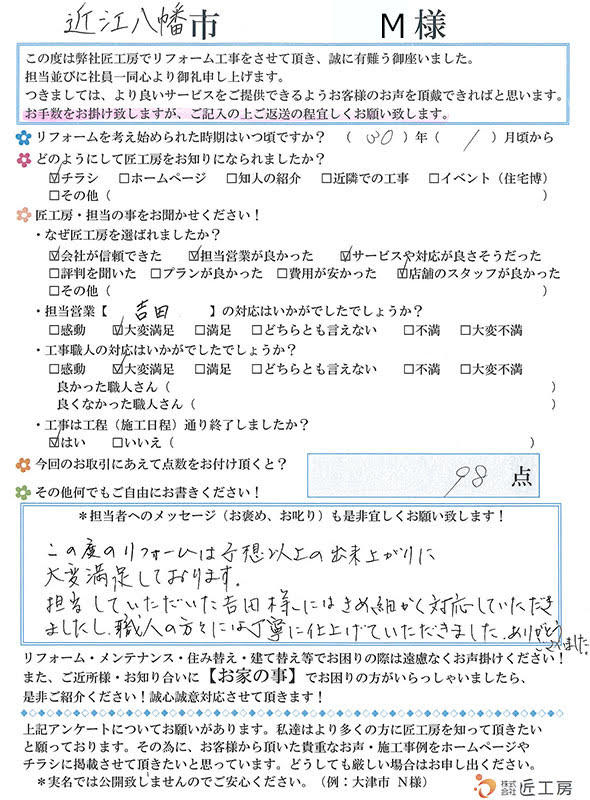 近江八幡市 M様
この度は弊社匠工房でリフォーム工事をさせて頂き、誠に有難う御座いました。
担当並びに社員一同心より御礼申し上げます。
つきましては、より良いサービスをご提供できるようお客様のお声を頂戴できればと思います。
お手数をお掛け致しますが、ご記入の上ご返送の程宜しくお願い致します。
リフォームを考え始められた時期はいつ頃ですか？ （ 30 ）年（ 1 ）月頃から
どのようにして匠工房をお知りになられましたか？
☑チラシ □ホームページ □知人の紹介 □近隣での工事 □イベント（住宅博）
□その他（ ）
匠工房・担当の事をお聞かせください！
・なぜ匠工房を選ばれましたか？
☑会社が信頼できた ☑担当営業が良かった ☑サービスや対応が良さそうだった
□評判を聞いた □プランが良かった □費用が安かった ☑店舗のスタッフが良かった
□その他（ ）
・担当営業【 吉田 】の対応はいかがでしたでしょうか？
□感動 ☑大変満足 □満足 □どちらとも言えない □不満 □大変不満
・工事職人の対応はいかがでしたでしょうか？
□感動 ☑大変満足 □満足 □どちらとも言えない □不満 □大変不満
良かった職人さん（ ）
良くなかった職人さん（ ）
・工事は工程（施工日程）通り終了しましたか？
☑はい □いいえ（ ）
今回のお取引にあえて点数をお付け頂くと？ 98 点
その他何でもご自由にお書きください！
＊担当者へのメッセージ（お褒め、お叱り）も是非宜しくお願い致します！
この度のリフォームは予想以上の出来上がりに
大変満足しております。
担当していただいた吉田様にはきめ細かく対応していただき
ましたし、職人の方々には丁寧に仕上げていただきました。ありがとう
ございました。
リフォーム・メンテナンス・住み替え・建て替え等でお困りの際は遠慮なくお声掛けください！
また、ご近所様・お知り合いに【お家の事】でお困りの方がいらっしゃいましたら、
是非ご紹介ください！誠心誠意対応させて頂きます！
上記アンケートについてお願いがあります。私達はより多くの方に匠工房を知って頂きたい
と願っております。その為に、お客様から頂いた貴重なお声・施工事例をホームページや
チラシに掲載させて頂きたいと思っています。どうしても厳しい場合はお申し出ください。
＊実名では公開致しませんのでご安心ください。（例：大津市 N様）
株式会社 匠工房